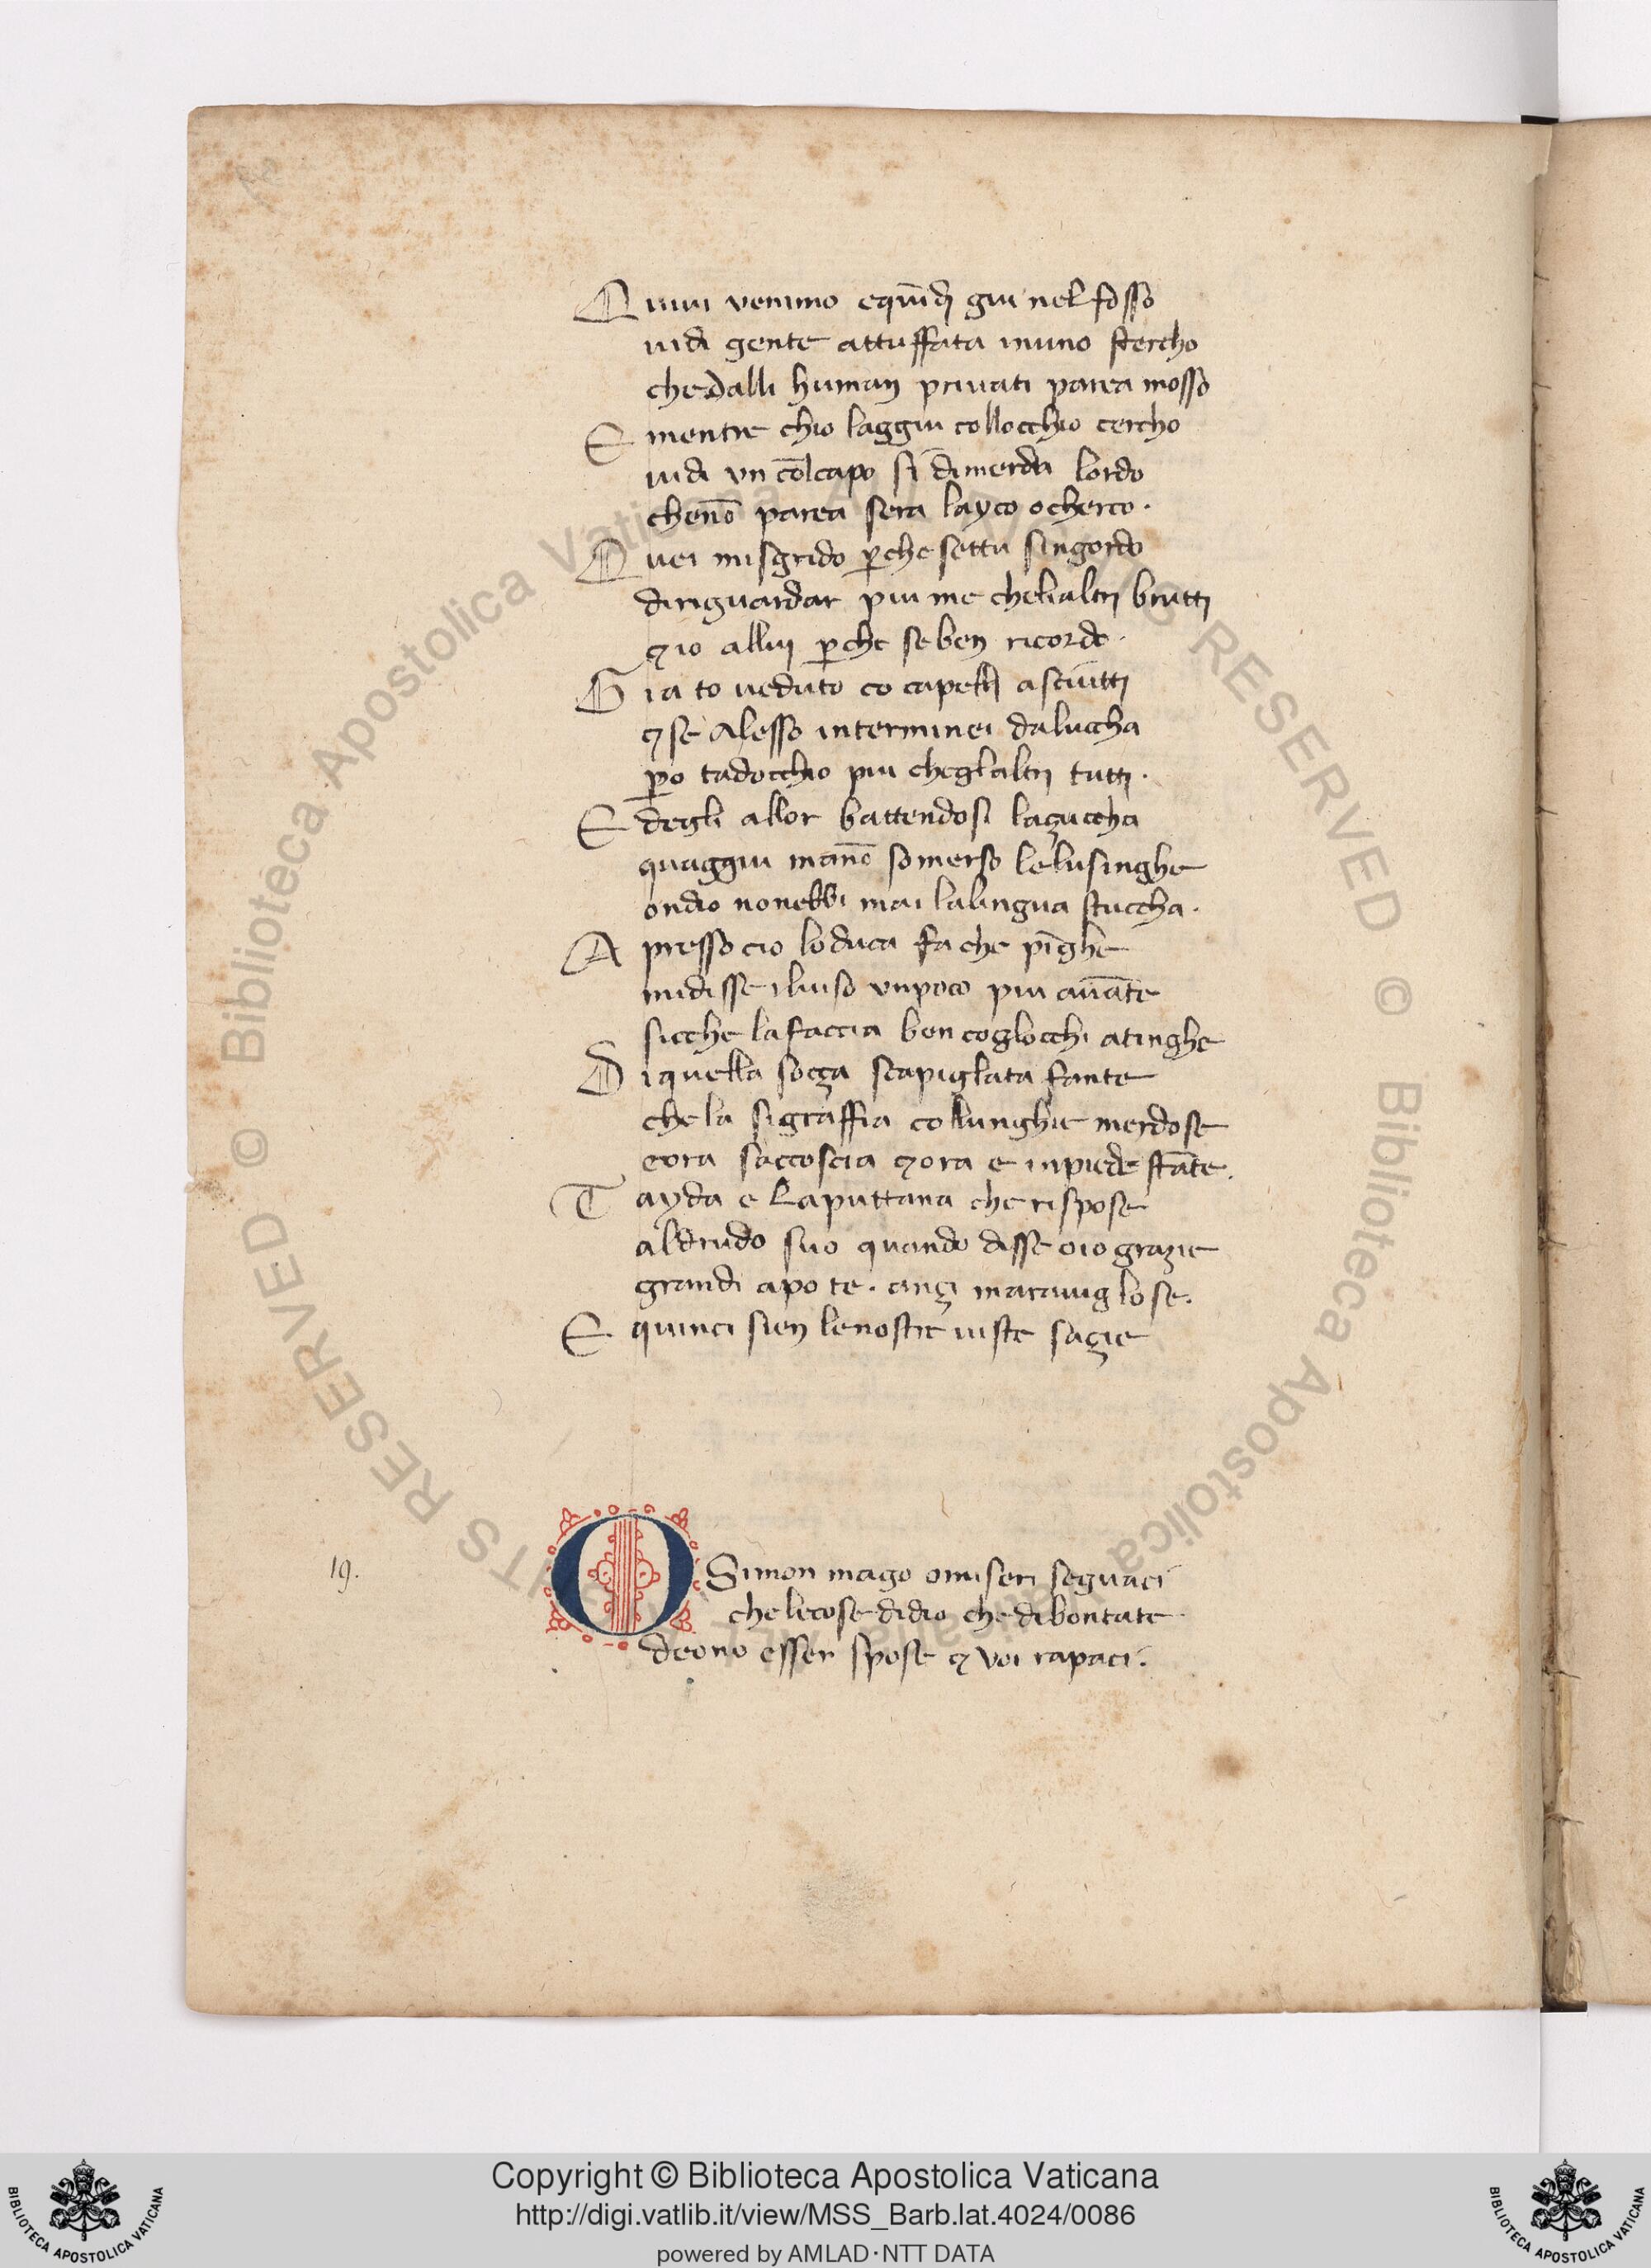 Quiui venimo equīdi giu nel fosso
uidi gente attuffata inuno stercho
chedalli human priuati parea mosso
E mentre chio laggiu collocchio cercho
uidi vn cōlcapo si dimerda lordo
chenō parea sera layco ocherco.
Quei misgrido ꝑche settu singordo
diriguardar piu me chelialtri brutti
⁊ io allui ꝑche seben ricordo.
Gia to ueduto co capelli asciutti
⁊ se Alesso interminei dalucha
ꝑo tadocchio piu cheglaltri tutti.
E degli allor battendosi laçuccha
quaggiu mānō somerso lelusinghe
ondio nonebbi mai lalingua stuccha.
Apresso cio loduca fa che pīghe
midisse iluiso vnpoco piu auāte
sicche lafaccia ben coglocchi atinghe
Diquella soçça scapiglata fante
che la sigraffia collunghie merdose
eora saccoscia ⁊ ora e inpiede stāte.
Tayda e Laputtana che rispose
aldrudo suo quando disse oio grazie
grandi apo te. ançi marauiglose.
E quinci sien lenostre uiste saçie
19.
O Simon mago omiseri seguaci
che lecose didio che dibontate
deono esser spose ⁊ voi rapaci.
© Biblioteca Apostolica Vaticana ALL RIGHTS RESERVED © Biblioteca Apostolica Vaticana ALL RIGHTS RESERVED
Copyright © Biblioteca Apostolica Vaticana
http://digi.vatlib.it/view/MSS_Barb.lat.4024/0086
powered by AMLAD·NTT DATA
BIBLIOTECA APOSTOLICA VATICANA
BIBLIOTECA APOSTOLICA VATICANA